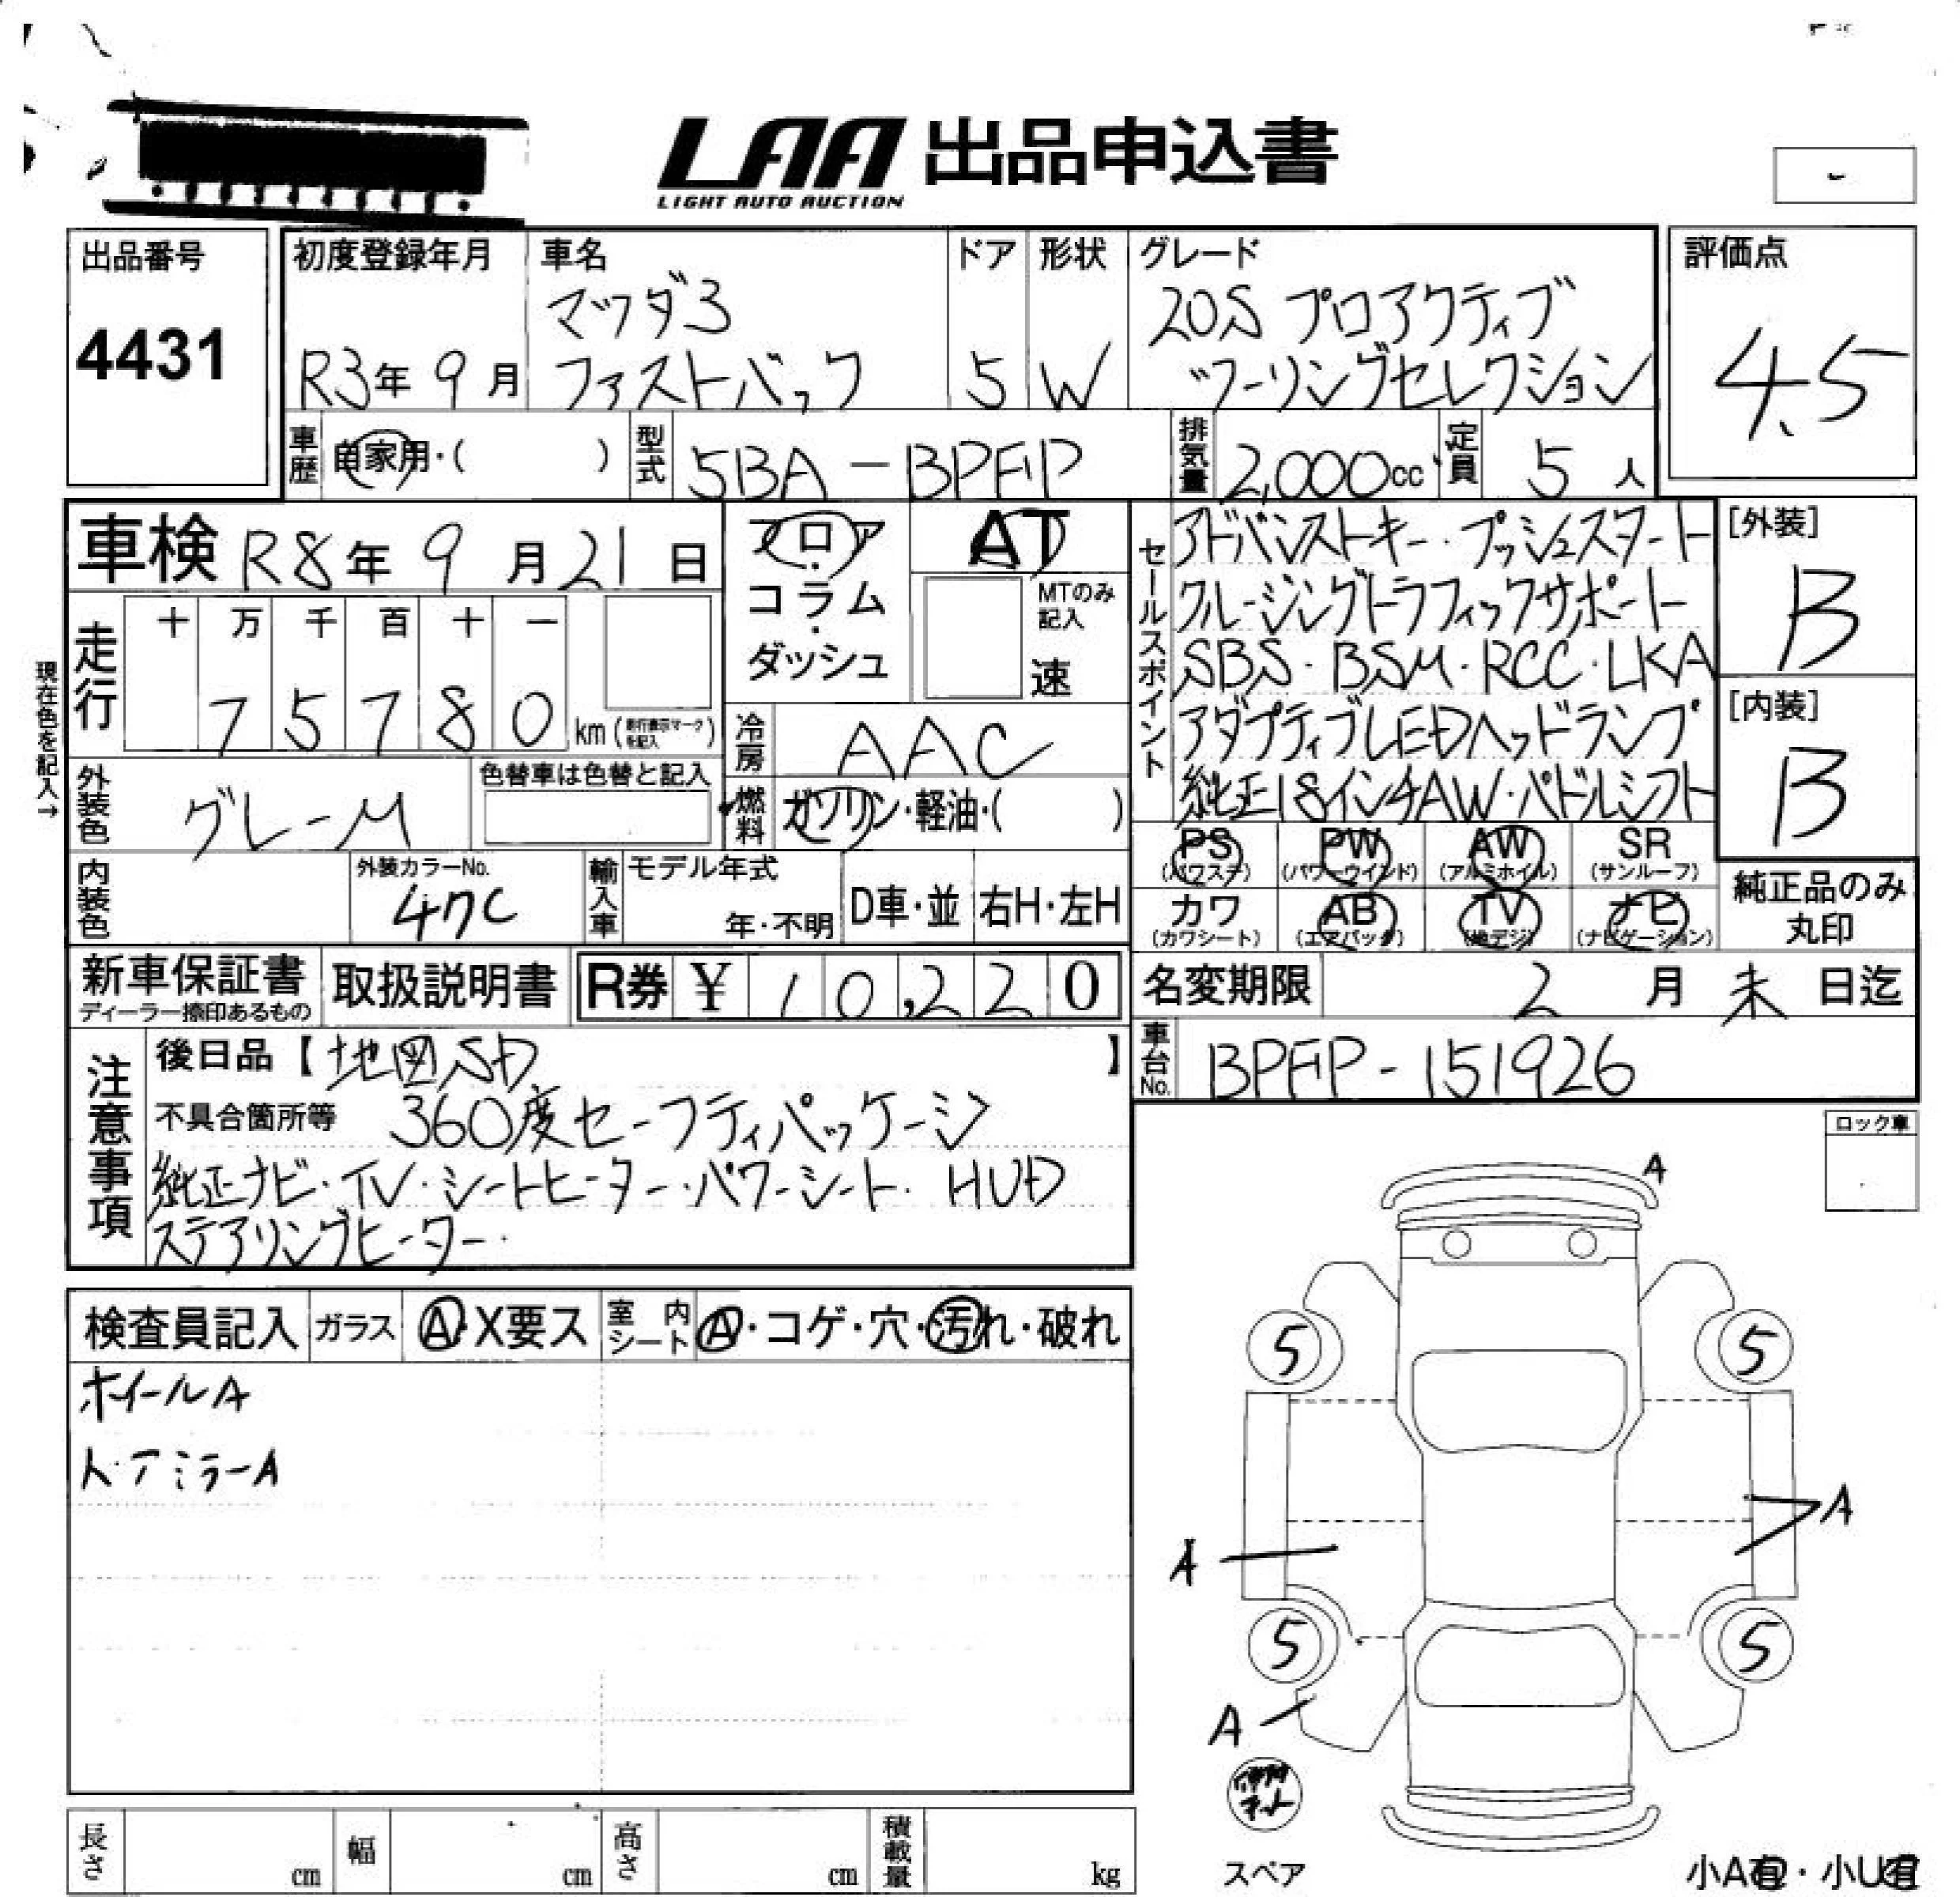 LAA 出品申込書
LIGHT AUTO AUCTION
出品番号
4431
初度登録年月
R3年 9月
車名
マツダ3
ファストバック
ドア
5
形状
W
グレード
20S プロアクティブ
ツーリングセレクション
評価点
4.5
車歴 自家用・( )
型式 5BA-BPFP
排気量 2,000cc
定員 5人
車検 R8年 9月 21日
フロア・コラム・ダッシュ
AT
MTのみ記入
速
セールスポイント
アドバンストキー・プッシュスタート
クルージングトラフィックサポート
SBS・BSM・RCC・LKA
アダプティブLEDヘッドランプ
純正18インチAW・パドルシフト
[外装]
B
[内装]
B
現在色を記入→
走行
十 万 千 百 十 一
7 5 7 8 0 km (走行表示マークを記入)
冷房 AAC
外装色 グレーM
色替車は色替と記入
燃料 ガソリン・軽油・( )
内装色
外装カラーNo.
47C
輸入車 モデル年式
年・不明
D車・並
右H・左H
PS (パワステ) PW (パワーウインド) AW (アルミホイル) SR (サンルーフ)
カワ (カワシート) AB (エアバッグ) TV (地デジ) ナビ (ナビゲーション)
純正品のみ
丸印
新車保証書
ディーラー捺印あるもの
取扱説明書
R券 ¥ 10,220
名変期限 2月 末日迄
車台No. BPFP-151926
注意事項
後日品【地図SD 】
不具合箇所等 360度セーフティパッケージ
純正ナビ・TV・シートヒーター・パワーシート・HUD
ステアリングヒーター・
ロック車
検査員記入
ガラス A・X要ス
室内シート A・コゲ・穴・汚れ・破れ
ホイールA
ドアミラーA
A
5 5
A
A
5 5
A
スペア
小A有・小U有
長さ cm
幅 cm
高さ cm
積載量 kg